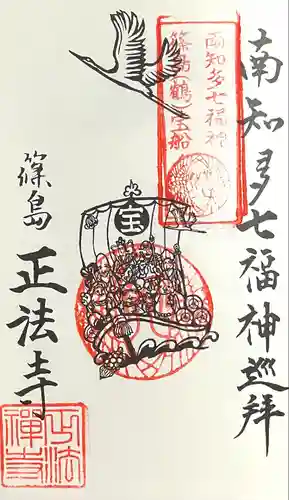 南知多七福神巡拜
南知多七福神
篠島(鶴)宝船
宝
篠島
正法寺
正法
禅寺